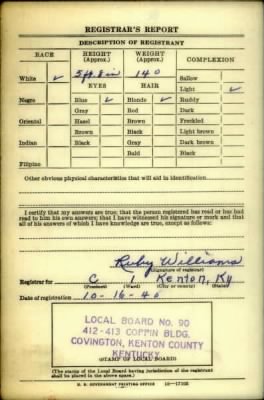 REGISTRAR'S REPORT
DESCRIPTION OF REGISTRANT
RACE HEIGHT (Approx.) WEIGHT (Approx.) COMPLEXION
White ✓ 5 ft. 8 in 140 Sallow
EYES HAIR Light ✓
Negro Blue ✓ Blonde ✓ Ruddy
Gray Red Dark
Oriental Hazel Brown Freckled
Brown Black Light brown
Indian Black Gray Dark brown
Bald Black
Filipino
Other obvious physical characteristics that will aid in identification
I certify that my answers are true; that the person registered has read or has had
read to him his own answers; that I have witnessed his signature or mark and that
all of his answers of which I have knowledge are true, except as follows:
Ruby Williams
(Signature of registrar)
Registrar for C 1 Kenton, Ky
(Precinct) (Ward) (City or county) (State)
Date of registration 10-16-40
LOCAL BOARD NO. 90
412-413 COPPIN BLDG.
COVINGTON, KENTON COUNTY
KENTUCKY
(STAMP OF LOCAL BOARD)
(The stamp of the Local Board having jurisdiction of the registrant
shall be placed in the above space.)
U. S. GOVERNMENT PRINTING OFFICE 16—17105